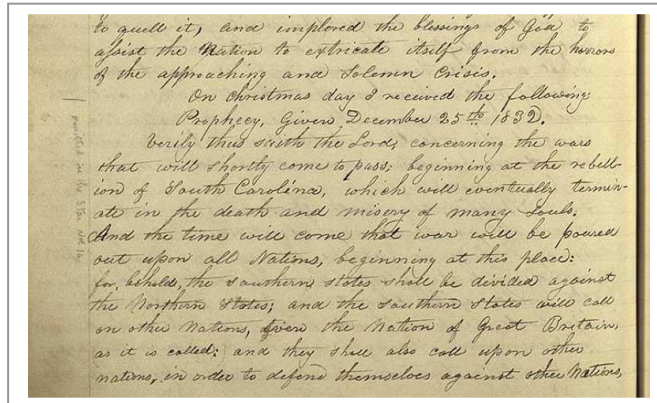 to quell it, and implored the blessings of God to
assist the Nation to extricate itself from the horrors
of the approaching and Solemn Crisis.
On Christmas day I received the following;
Prophecy, Given December 25th 1832.
Verily thus saith the Lord, concerning the wars
that will shortly come to pass; beginning at the rebell-
ion of South Carolina, which will eventually termin-
ate in the death and misery of many Souls.
And the time will come that war will be poured
out upon all Nations, beginning at this place:
for, behold, the southern States shall be divided against
the Northern States; and the southern States will call
on other Nations, Even the Nation of Great Britain,
as it is called; and they shall also call upon other
nations, in order to defend themselves against other Nations,
in the Star